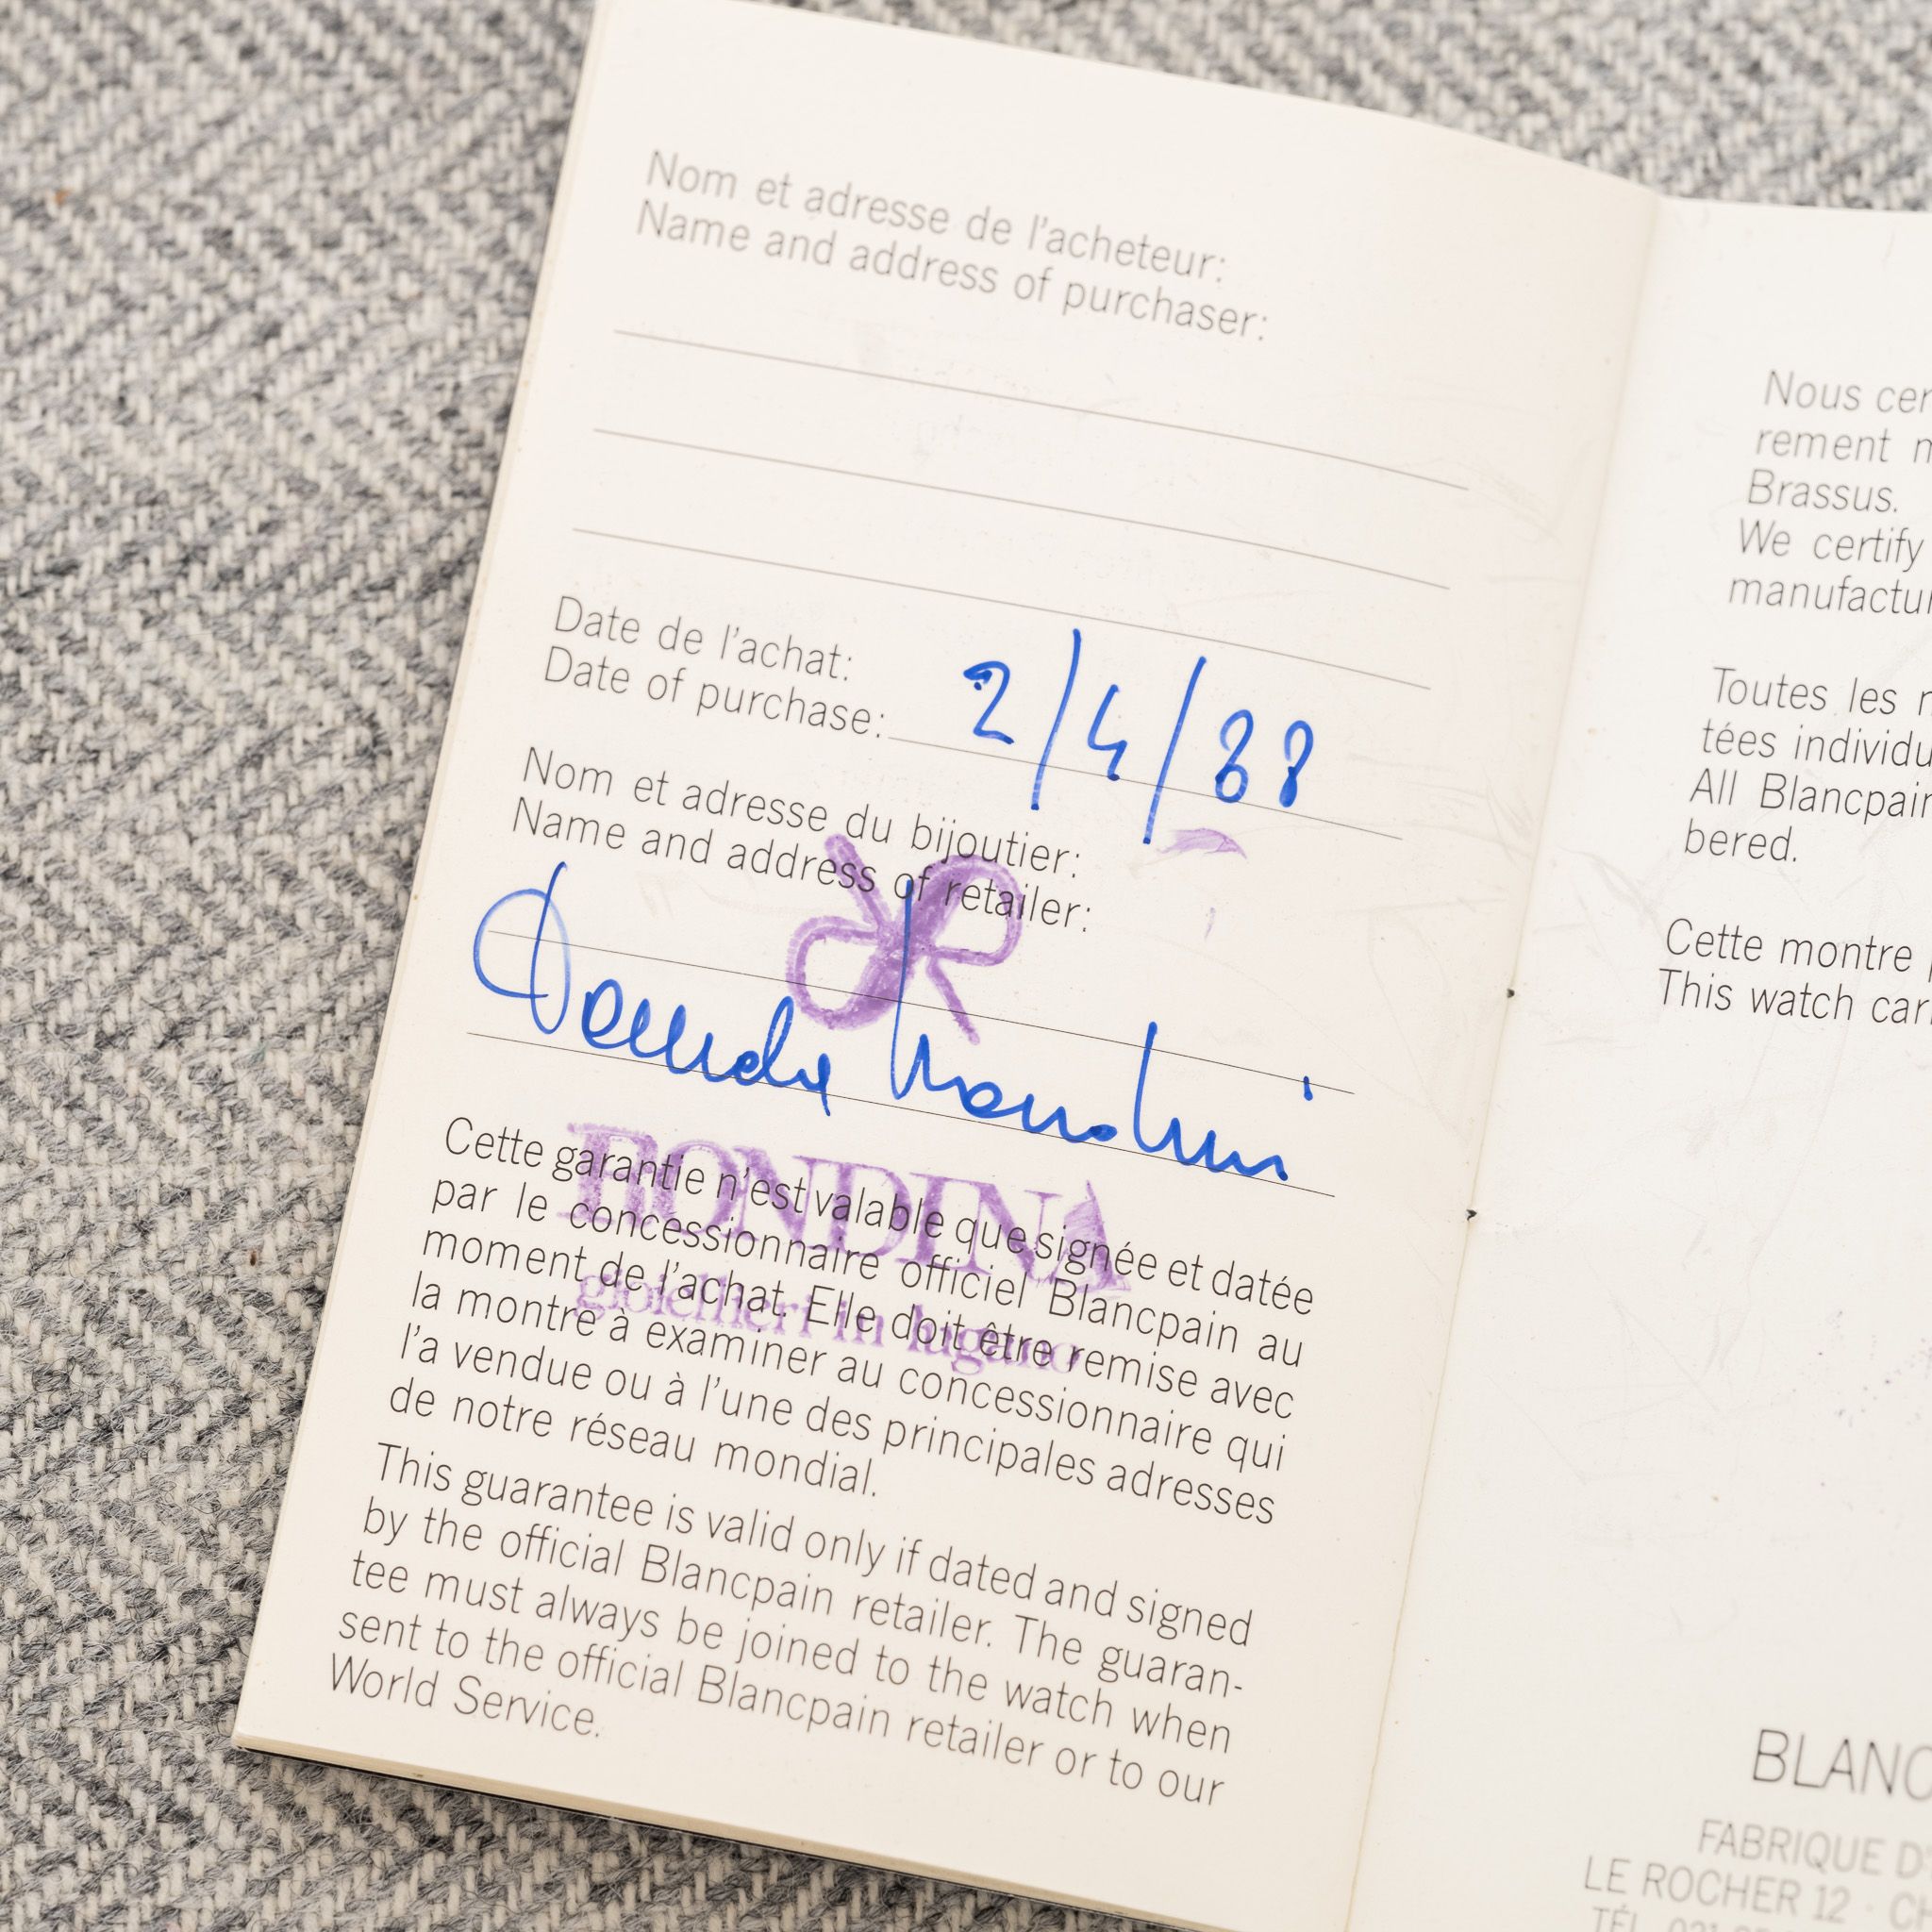 Nom et adresse de l'acheteur:
Name and address of purchaser:
Date de l'achat:
Date of purchase: 2/4/88
Nom et adresse du bijoutier:
Name and address of retailer:
RONDINA
gioiellieri in lugano
Cette garantie n'est valable que signée et datée
par le concessionnaire officiel Blancpain au
moment de l'achat. Elle doit être remise avec
la montre à examiner au concessionnaire qui
l'a vendue ou à l'une des principales adresses
de notre réseau mondial.
This guarantee is valid only if dated and signed
by the official Blancpain retailer. The guaran-
tee must always be joined to the watch when
sent to the official Blancpain retailer or to our
World Service.
Nous cer
rement m
Brassus.
We certify
manufactur
Toutes les
tées individu
All Blancpain
bered.
Cette montre
This watch car
BLANC
FABRIQUE D'
LE ROCHER 12 · CH
TÉL. 021